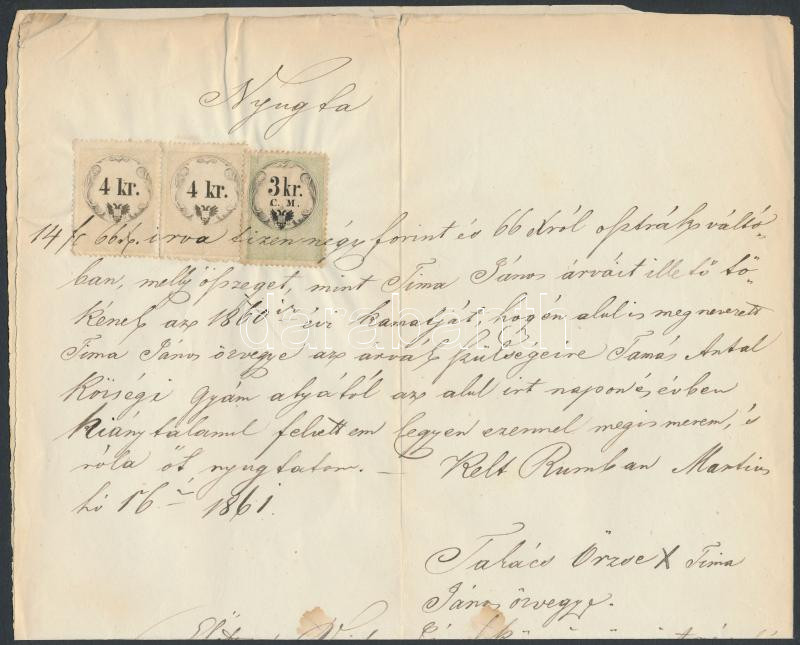 Nyugta
4 kr.
4 kr.
3 kr.
C. M.
14 f 66 x. irva tizennégy forint és 66 xról osträk váltó-
ban, melly öszeget, mint Tima János árváit illető tő-
kének az 1860ik évi kamatját, hogy én alul is megnevezett
Tima János özvegye az árvák szükségeire Tamás Antal
Községi gyám atyától az alul irt napon és évben
hiánytalanul felvettem legyen ezennel megismerem, és
róla őt nyugtatom. — Kelt Rumban Martius
hó 16 1861.
Takács Örzse X Tima
János özvegye.
darabanth